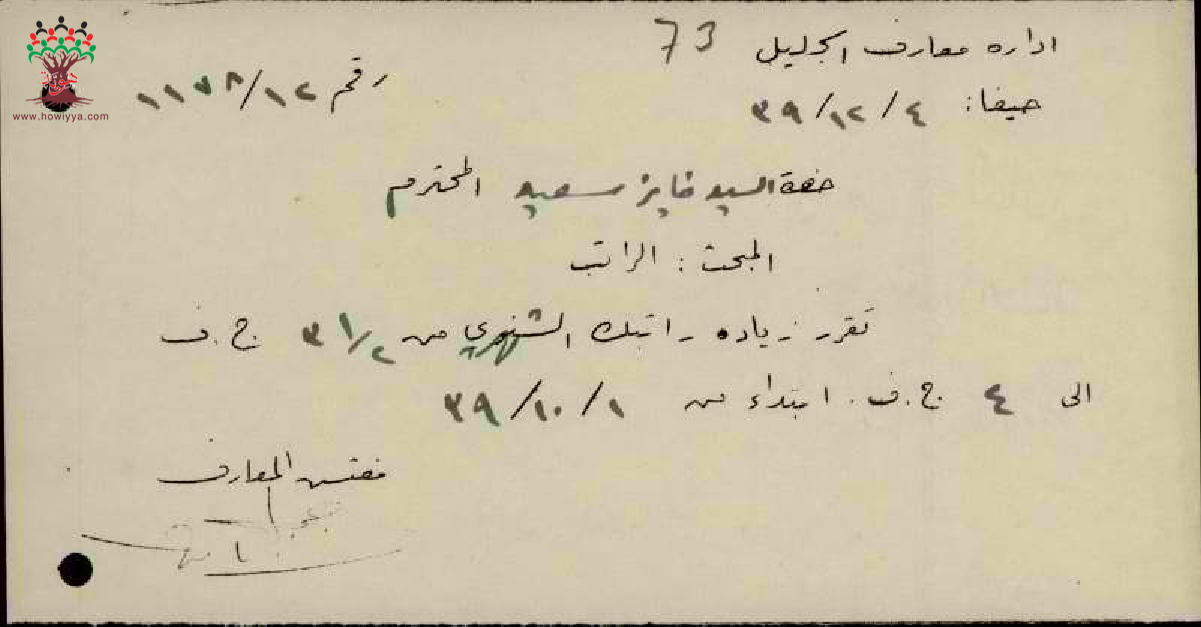 اداره معارف الجليل 73
رقم ١١٧٨/١٢
حيفا: ٤/١٢/٣٩
حضرة السيد فايز سعيد المحترم
المبحث: الراتب
تقرر زياده راتبك الشهري من ٣ ١/٢ ج.ف
الى ٤ ج.ف. ابتداء من ١/١٠/٣٩
مفتش المعارف
www.howiyya.com